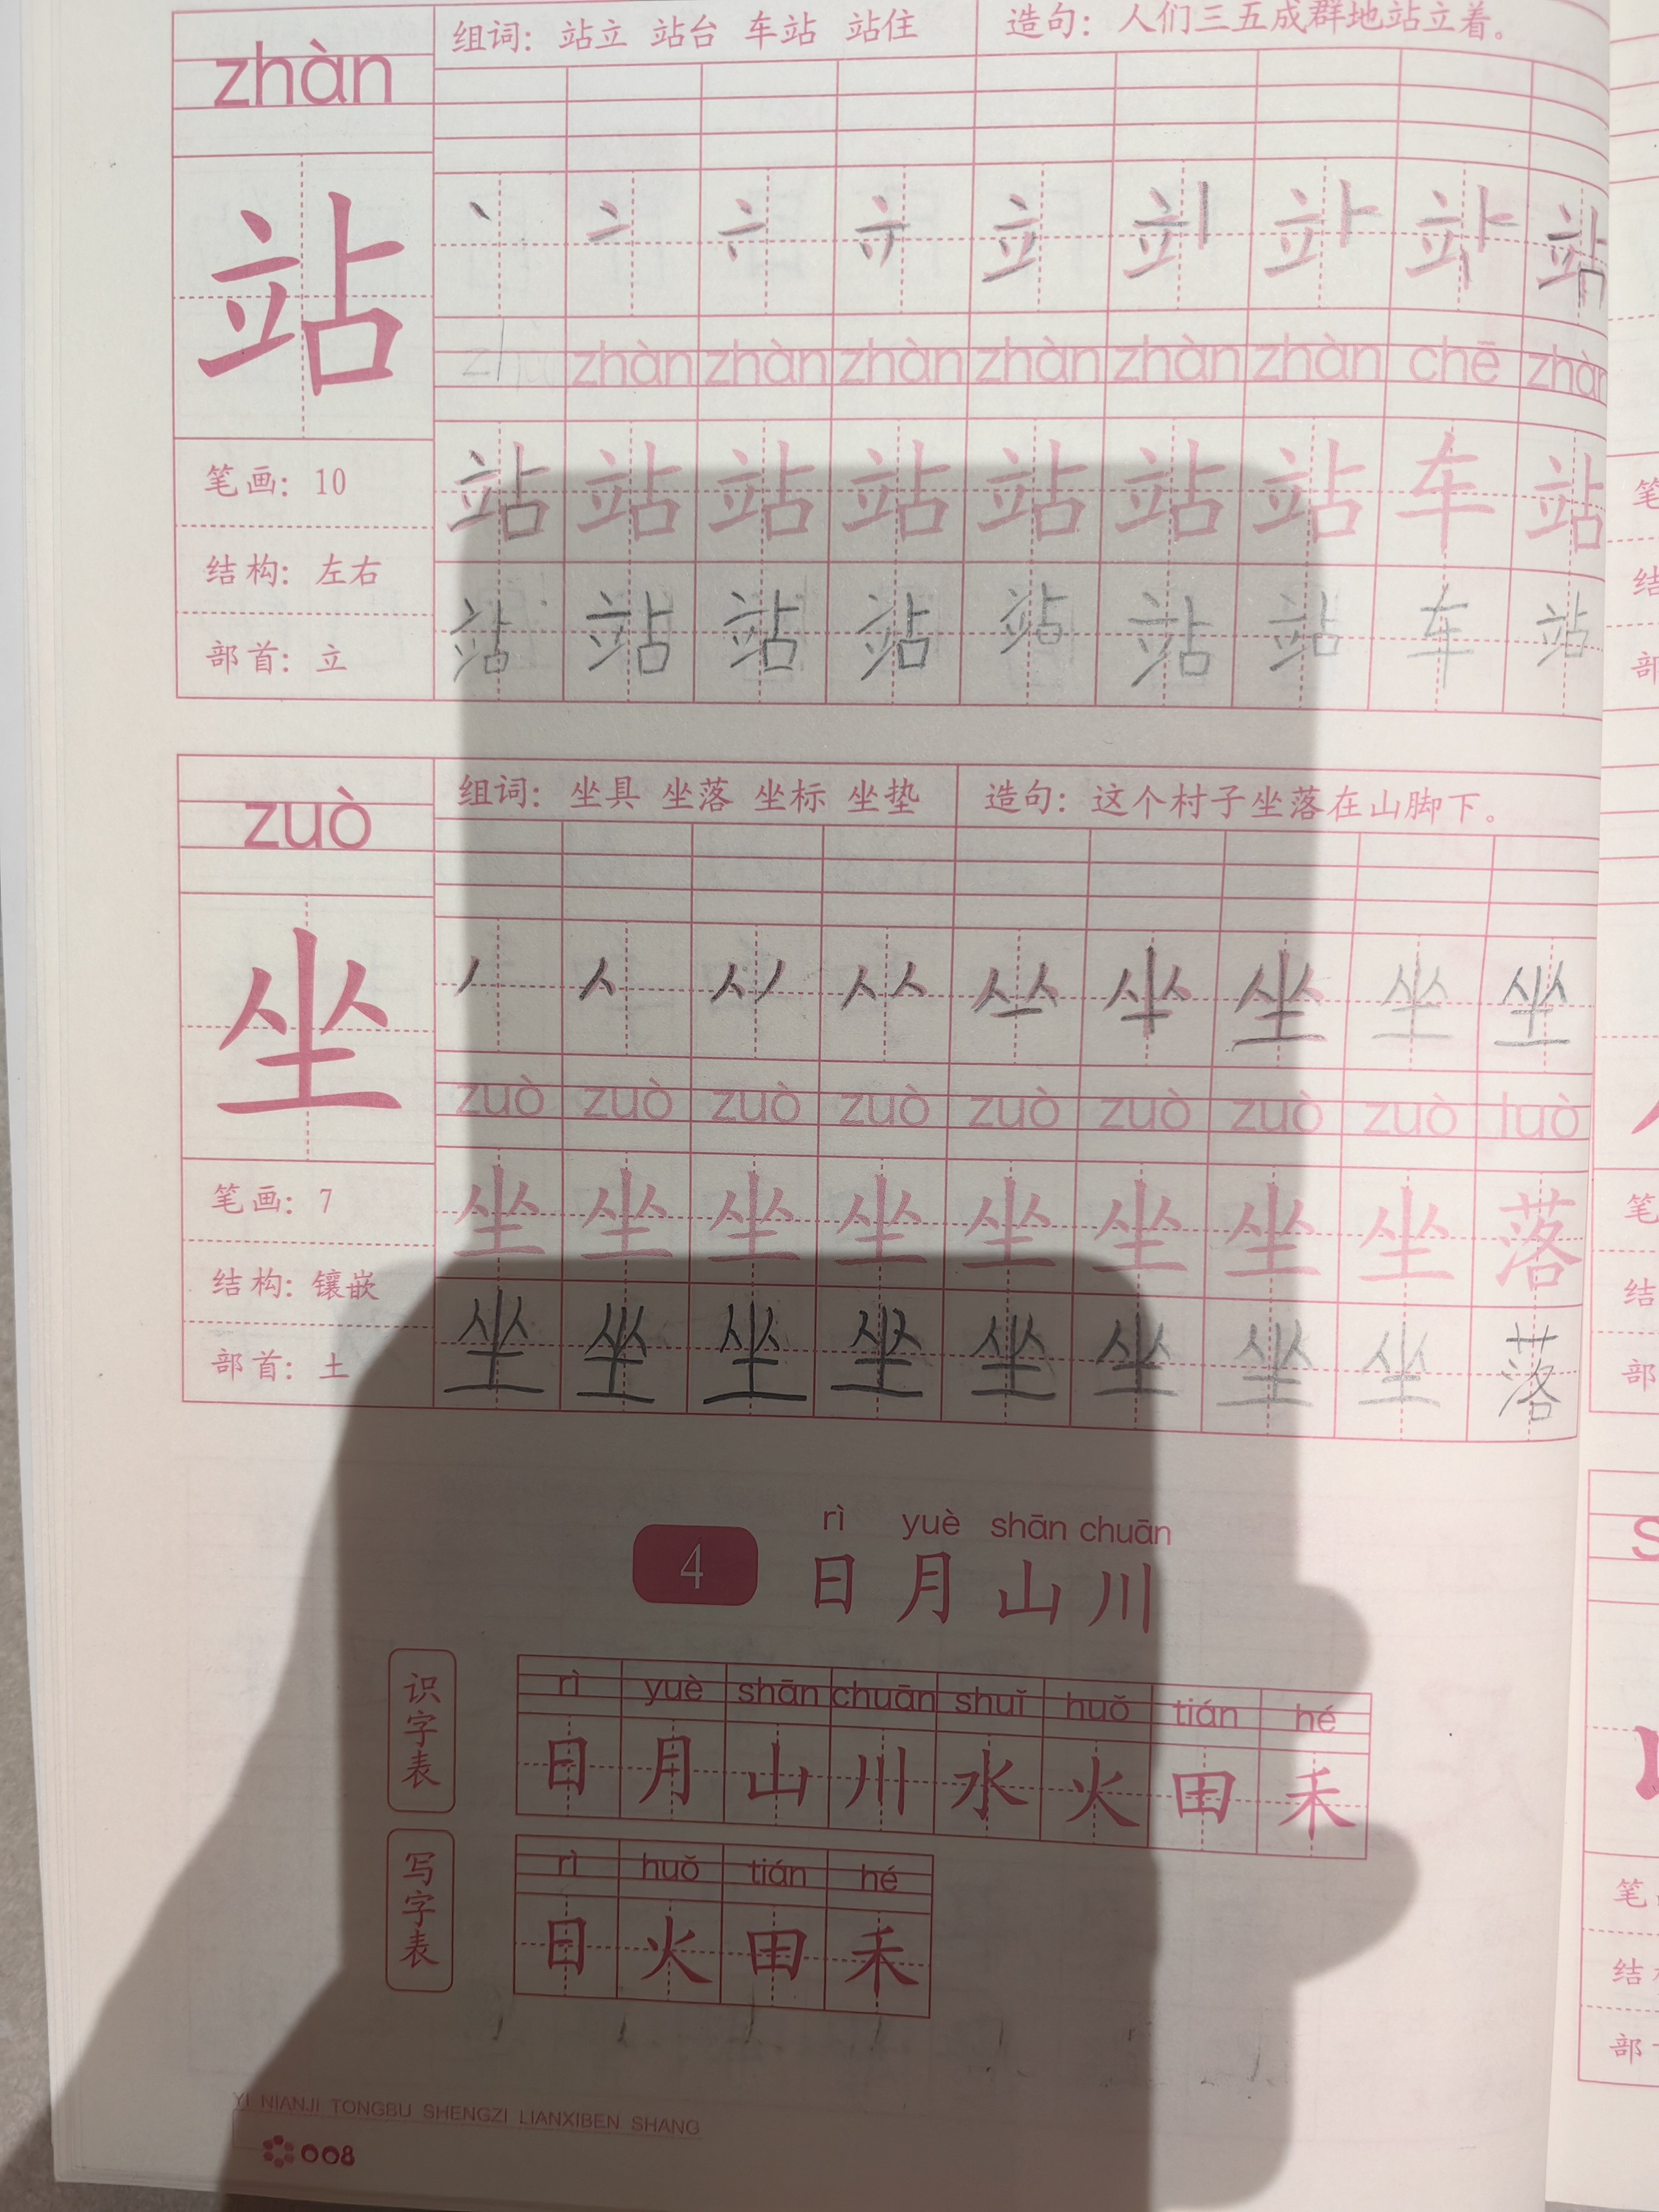 zhàn 组词：站立 站台 车站 站住 造句：人们三五成群地站立着。
站 丶 立 站
zhàn zhàn zhàn zhàn zhàn zhàn chē zhàn
笔画：10 站 站 站 站 站 站 站 车 站
结构：左右
部首：立 站 站 站 站 站 站 站 车 站
zuò 组词：坐具 坐落 坐标 坐垫 造句：这个村子坐落在山脚下。
坐 丿 人 从 坐 坐 坐
zuò zuò zuò zuò zuò zuò zuò zuò luò
笔画：7 坐 坐 坐 坐 坐 坐 坐 坐 落
结构：镶嵌
部首：土 坐 坐 坐 坐 坐 坐 坐 坐 落
rì yuè shān chuān
4 日 月 山 川
识字表
rì yuè shān chuān shuǐ huǒ tián hé
日 月 山 川 水 火 田 禾
写字表
rì huǒ tián hé
日 火 田 禾
YI NIANJI TONGBU SHENGZI LIANXIBEN SHANG
008
笔
结
部
笔
结
部
笔
结
部